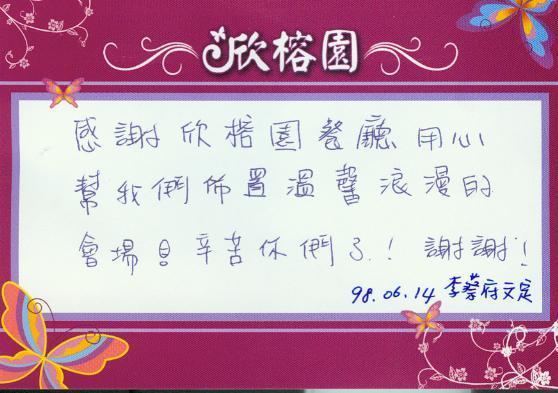 欣榕園
感謝欣榕園餐廳用心
幫我們佈置溫馨浪漫的
會場 辛苦你們了.! 謝謝!
98.06.14 李蔡府文定